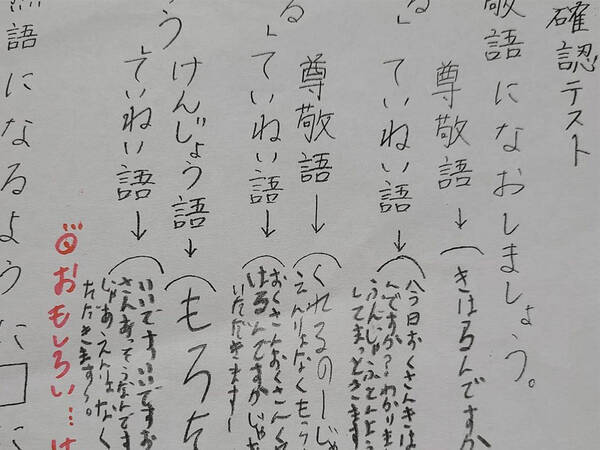 確認テスト
敬語になおしましょう。
尊敬語→（きはるんですか
る」ていねい語→（
今日おくさんきは
んですか?わかりま
してまっときます
尊敬語→（くれるのーじゃ
えんりょなくもら
る」ていねい語→（
おくさんおくさんく
はるんですか
いただきますー
う けんじょう語→（もろ
」ていねい語→（
いいですいいですお
さんあっそうなんです
じゃあえんりょなく
ただきます〜。
おもしろい…は
語になるように□に